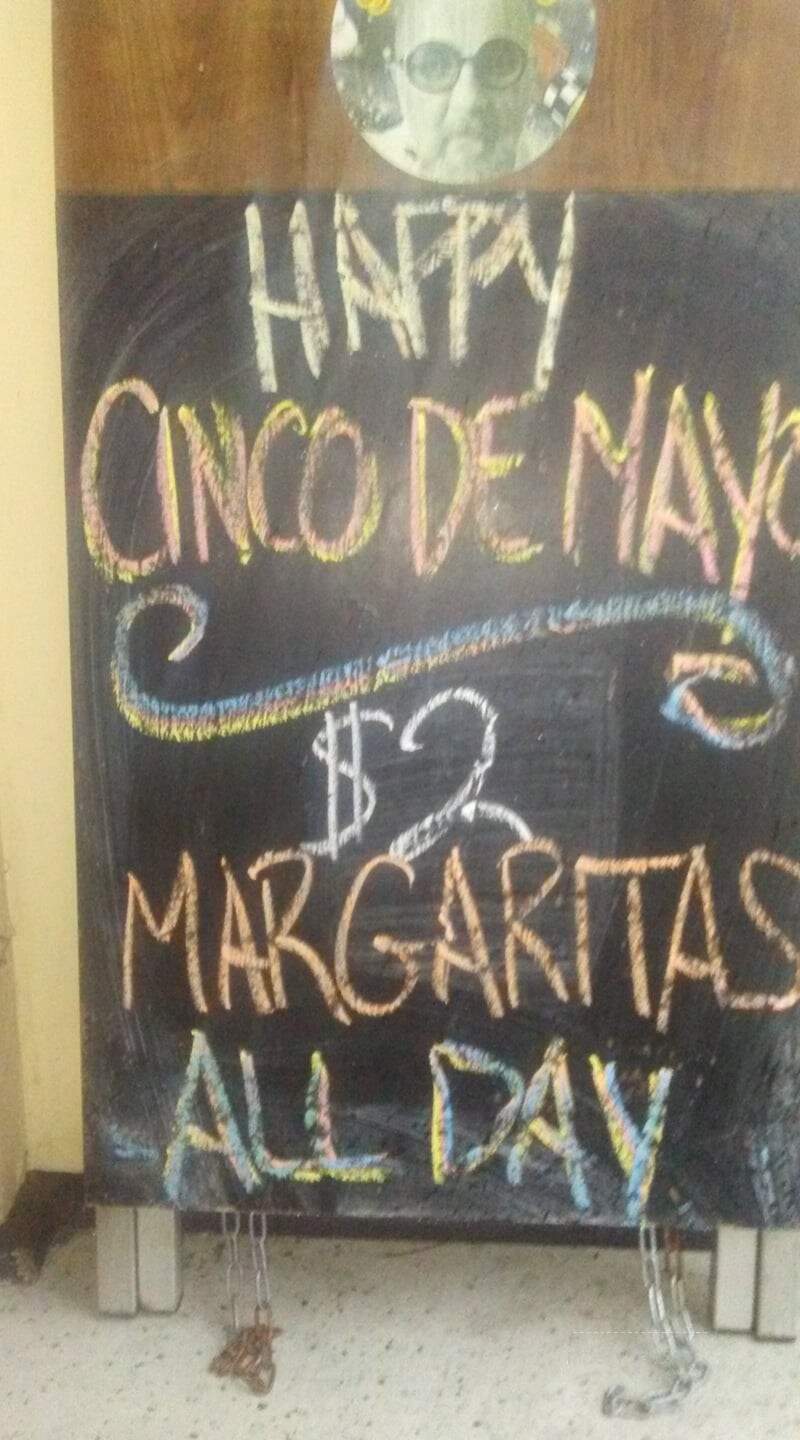 HAPPY
CINCO DE MAYO
$2
MARGARITAS
ALL DAY